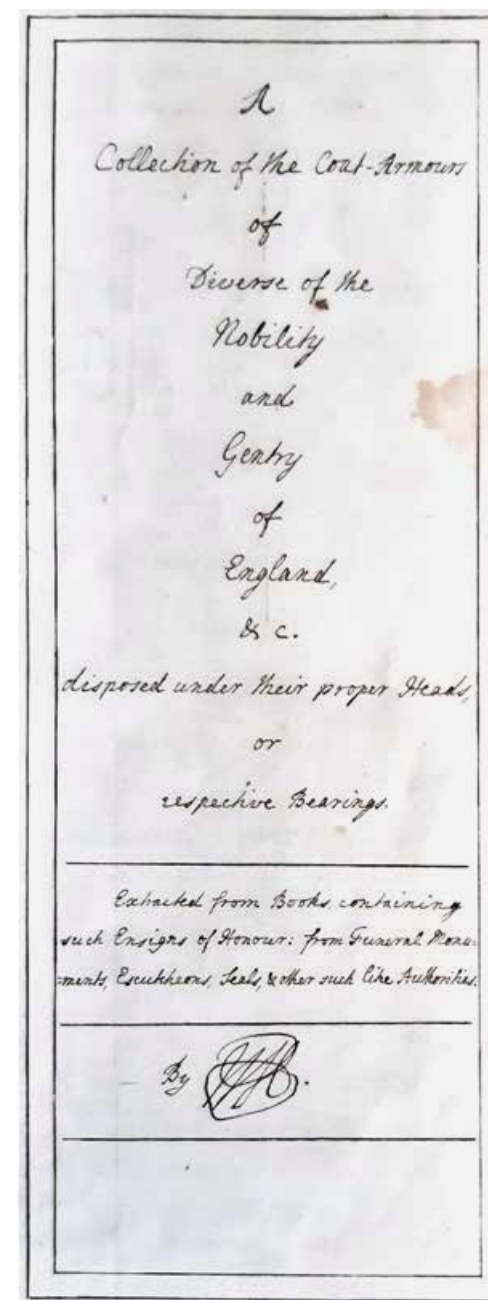 A
Collection of the Coat-Armours
of
Diverse of the
Nobility
and
Gentry
of
England,
& c.
disposed under their proper Heads,
or
respective Bearings.
Extracted from Books, containing
such Ensigns of Honour: from Funeral Monu-
=ments, Escutcheons, Seals, & other such like Authorities.
By